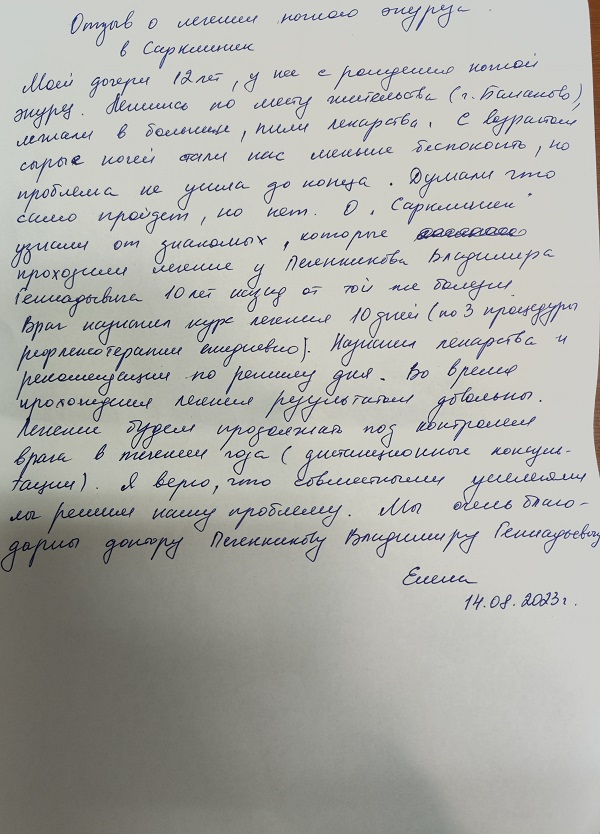 Отзыв о лечении ночного энуреза
в Сарклиник
Моей дочери 12 лет, у нее с рождения ночной
энурез. Лечились по месту жительства (г. Балаково),
лежали в больнице, пили лекарства. С возрастом
сырые ночей стали нас меньше беспокоить, но
проблема не ушла до конца. Думали что
само пройдет, но нет. О "Сарклиник"
узнали от знакомых, которые
проходили лечение у Пеленникова Владимира
Геннадьевича 10 лет назад от той же болезни
Врач назначил курс лечения 10 дней (по 3 процедуры
рефлексотерапии ежедневно). Назначил лекарства и
рекомендации по режиму дня. Во время
прохождения лечения результатом довольны.
Лечение будем продолжать под контролем
врача в течении года (дистанционные консуль-
тации). Я верю, что совместными усилиями
мы решим нашу проблему. Мы очень благо-
дарны доктору Владимиру Геннадьевичу
Елена
14.08.2023г.